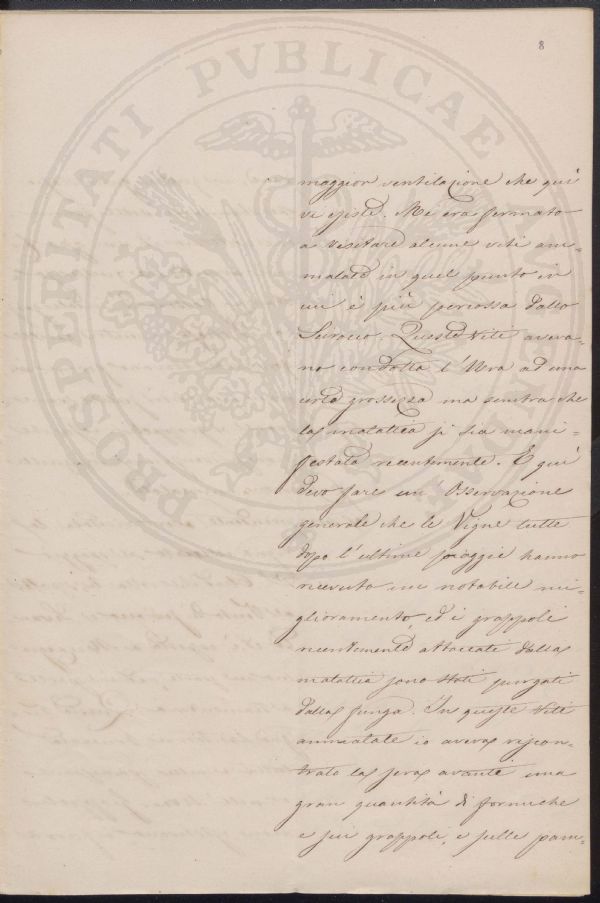 8
maggior ventilazione che qui
vi esiste. Mi era fermato
a visitare alcune viti am-
malate in quel punto in
cui è più percossa dallo
Scirocco. Queste viti aveva-
no condotta l'Uva ad una
certa grossezza ma sembra che
la malattia si sia mani-
festata recentemente. E quì
devo fare un Osservazione
generale che le Vigne tutte
dopo l'ultime pioggie hanno
ricevuto un notabile mi-
glioramento, ed i grappoli
recentemente attaccati dalla
malattia sono stati purgati
dalla funga. In queste viti
ammalate io aveva riscon-
trato la sera avanti una
gran quantità di formiche
e sui grappoli, e sulle pam-
PROSPERITATI PVBLICAE AVGENDAE